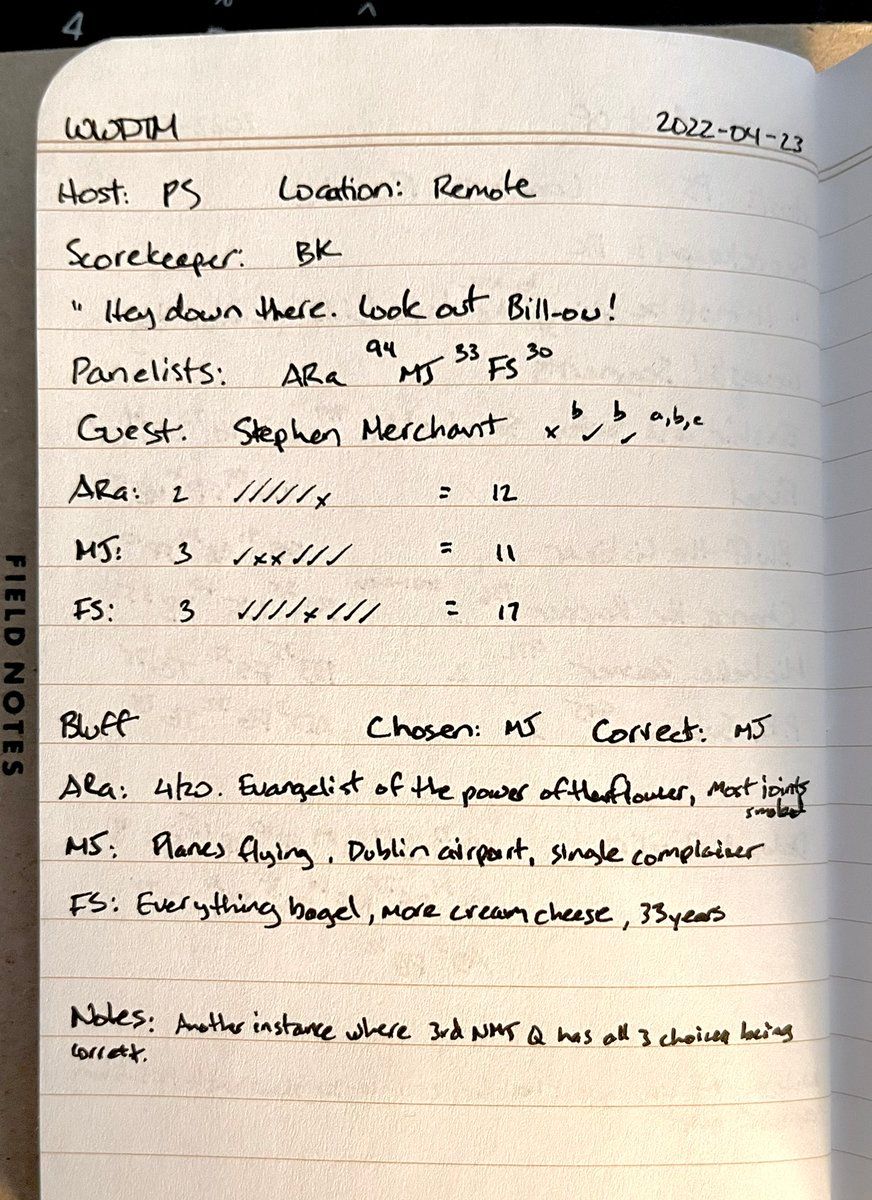 4
WWDTM 2022-04-23
Host: PS Location: Remote
Scorekeeper: BK
" Hey down there. Look out Bill-ow!
Panelists: ARa 94 MJ 33 FS 30
Guest: Stephen Merchant x b ✓ b ✓ a,b,c
ARa: 2 /////x = 12
MJ: 3 ✓xx✓// = 11
FS: 3 ////x/// = 17
Bluff Chosen: MJ Correct: MJ
ARa: 4/20. Evangelist of the power of flower, Most joints
smoked
MJ: Planes flying, Dublin airport, single complainer
FS: Everything bagel, more cream cheese, 33 years
Notes: Another instance where 3rd NMJ Q has all 3 choices being
correct.
FIELD NOTES